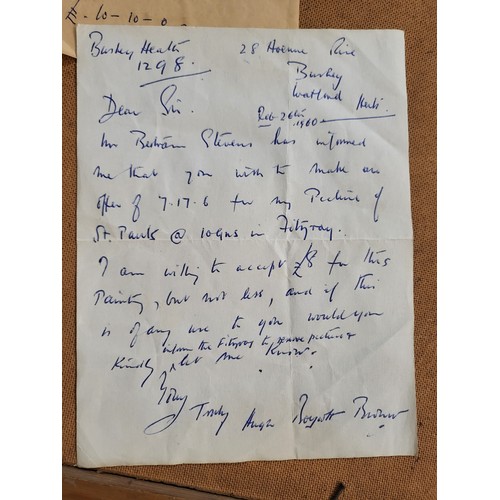 £-10-10-0
Bushey Heath
1298.
28 Avenue Rise
Bushey
Watford Herts.
Feb 26th 1960
Dear Sir.
Mr Bertram Stevens has informed
me that you wish to make an
offer of 7-17-6 for my Picture of
St. Pauls @ 10gns in Fitzroy.
I am willing to accept £8 for this
Painting, but not less, and if this
is of any use to you would you
inform the Fitzroy to remove picture &
Kindly let me Know.
Yours
Truly Hugh Boycott Brown